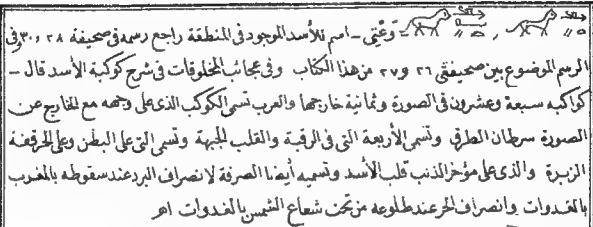 وَعْتِى - اسم للأسد الموجود فى المنطقة راجع رسمه فى صحيفة ٢٨ و ٣٠ وفى
الرسم الموضوع بين صحيفتى ٢٦ و ٢٧ من هذا الكتاب وفى عجائب المخلوقات فى شرح كوكبة الأسد قال -
كواكبه سبعة وعشرون فى الصورة وثمانية خارجها والعرب تسمى الكوكب الذى على وجهه مع الخارج عن
الصورة سرطان الطرف وتسمى الأربعة التى فى الرقبة والقلب الجبهة وتسمى التى على البطن وعلى الحرقفة
الزبرة والذى على مؤخر الذنب قلب الأسد وتسميه أيضا الصرفة لانصراف البرد عند سقوطه بالمغرب
بالغدوات وانصراف الحر عند طلوعه من تحت شعاع الشمس بالغدوات اهر